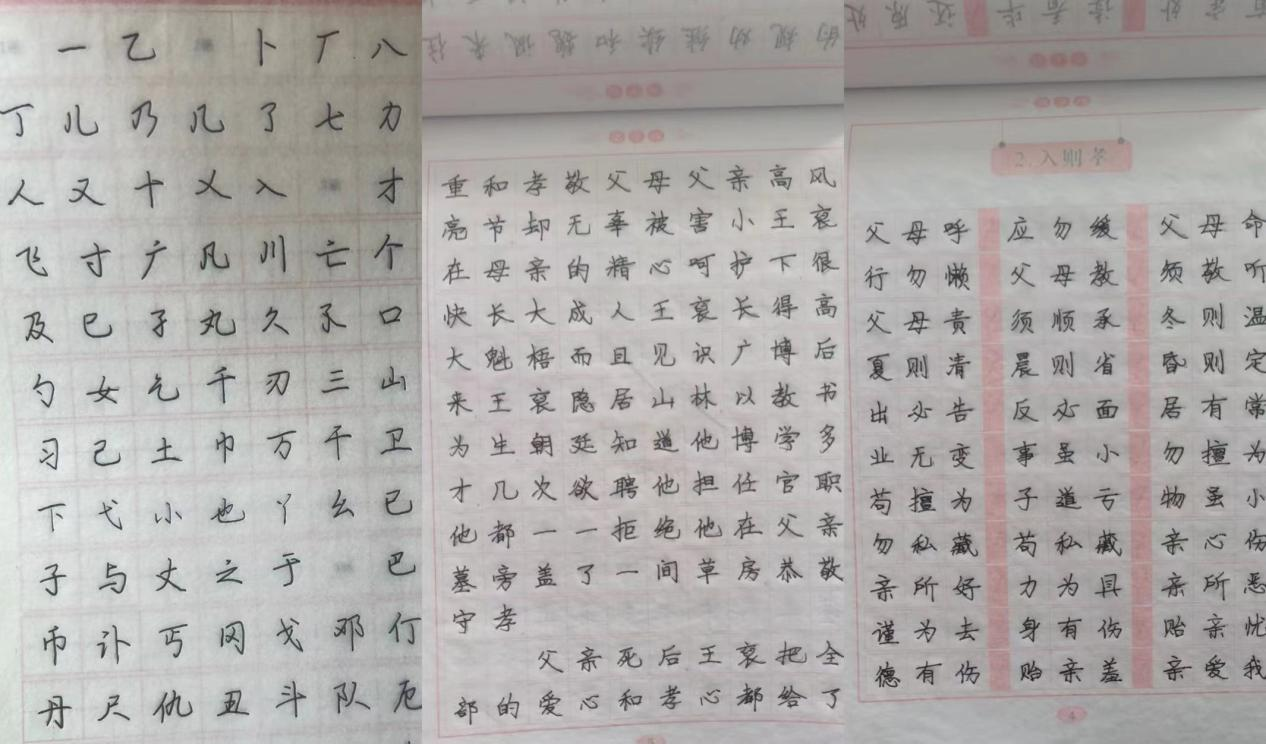 一乙卜厂八
丁儿乃几了七力
人又十乂入才
飞寸广凡川亡个
及巳孑丸久口
勺女乞千刃三山
习己土巾万干卫
下弋小也丫幺已
子与丈之于巴
币讣丐冈戈邓仃
丹尺仇丑斗队厄
重和孝敬父母父亲高风
亮节却无辜被害小王裒
在母亲的精心呵护下很
快长大成人王裒长得高
大魁梧而且见识广博后
来王裒隐居山林以教书
为生朝廷知道他博学多
才几次欲聘他担任官职
他都一一拒绝他在父亲
墓旁盖了一间草房恭敬
守孝
父亲死后王裒把全
部的爱心和孝心都给了
2.入则孝
父母呼 应勿缓 父母命
行勿懒 父母教 须敬听
父母责 须顺承 冬则温
夏则清 晨则省 昏则定
出必告 反必面 居有常
业无变 事虽小 勿擅为
苟擅为 子道亏 物虽小
勿私藏 苟私藏 亲心伤
亲所好 力为具 亲所恶
谨为去 身有伤 贻亲忧
德有伤 贻亲羞 亲爱我
4